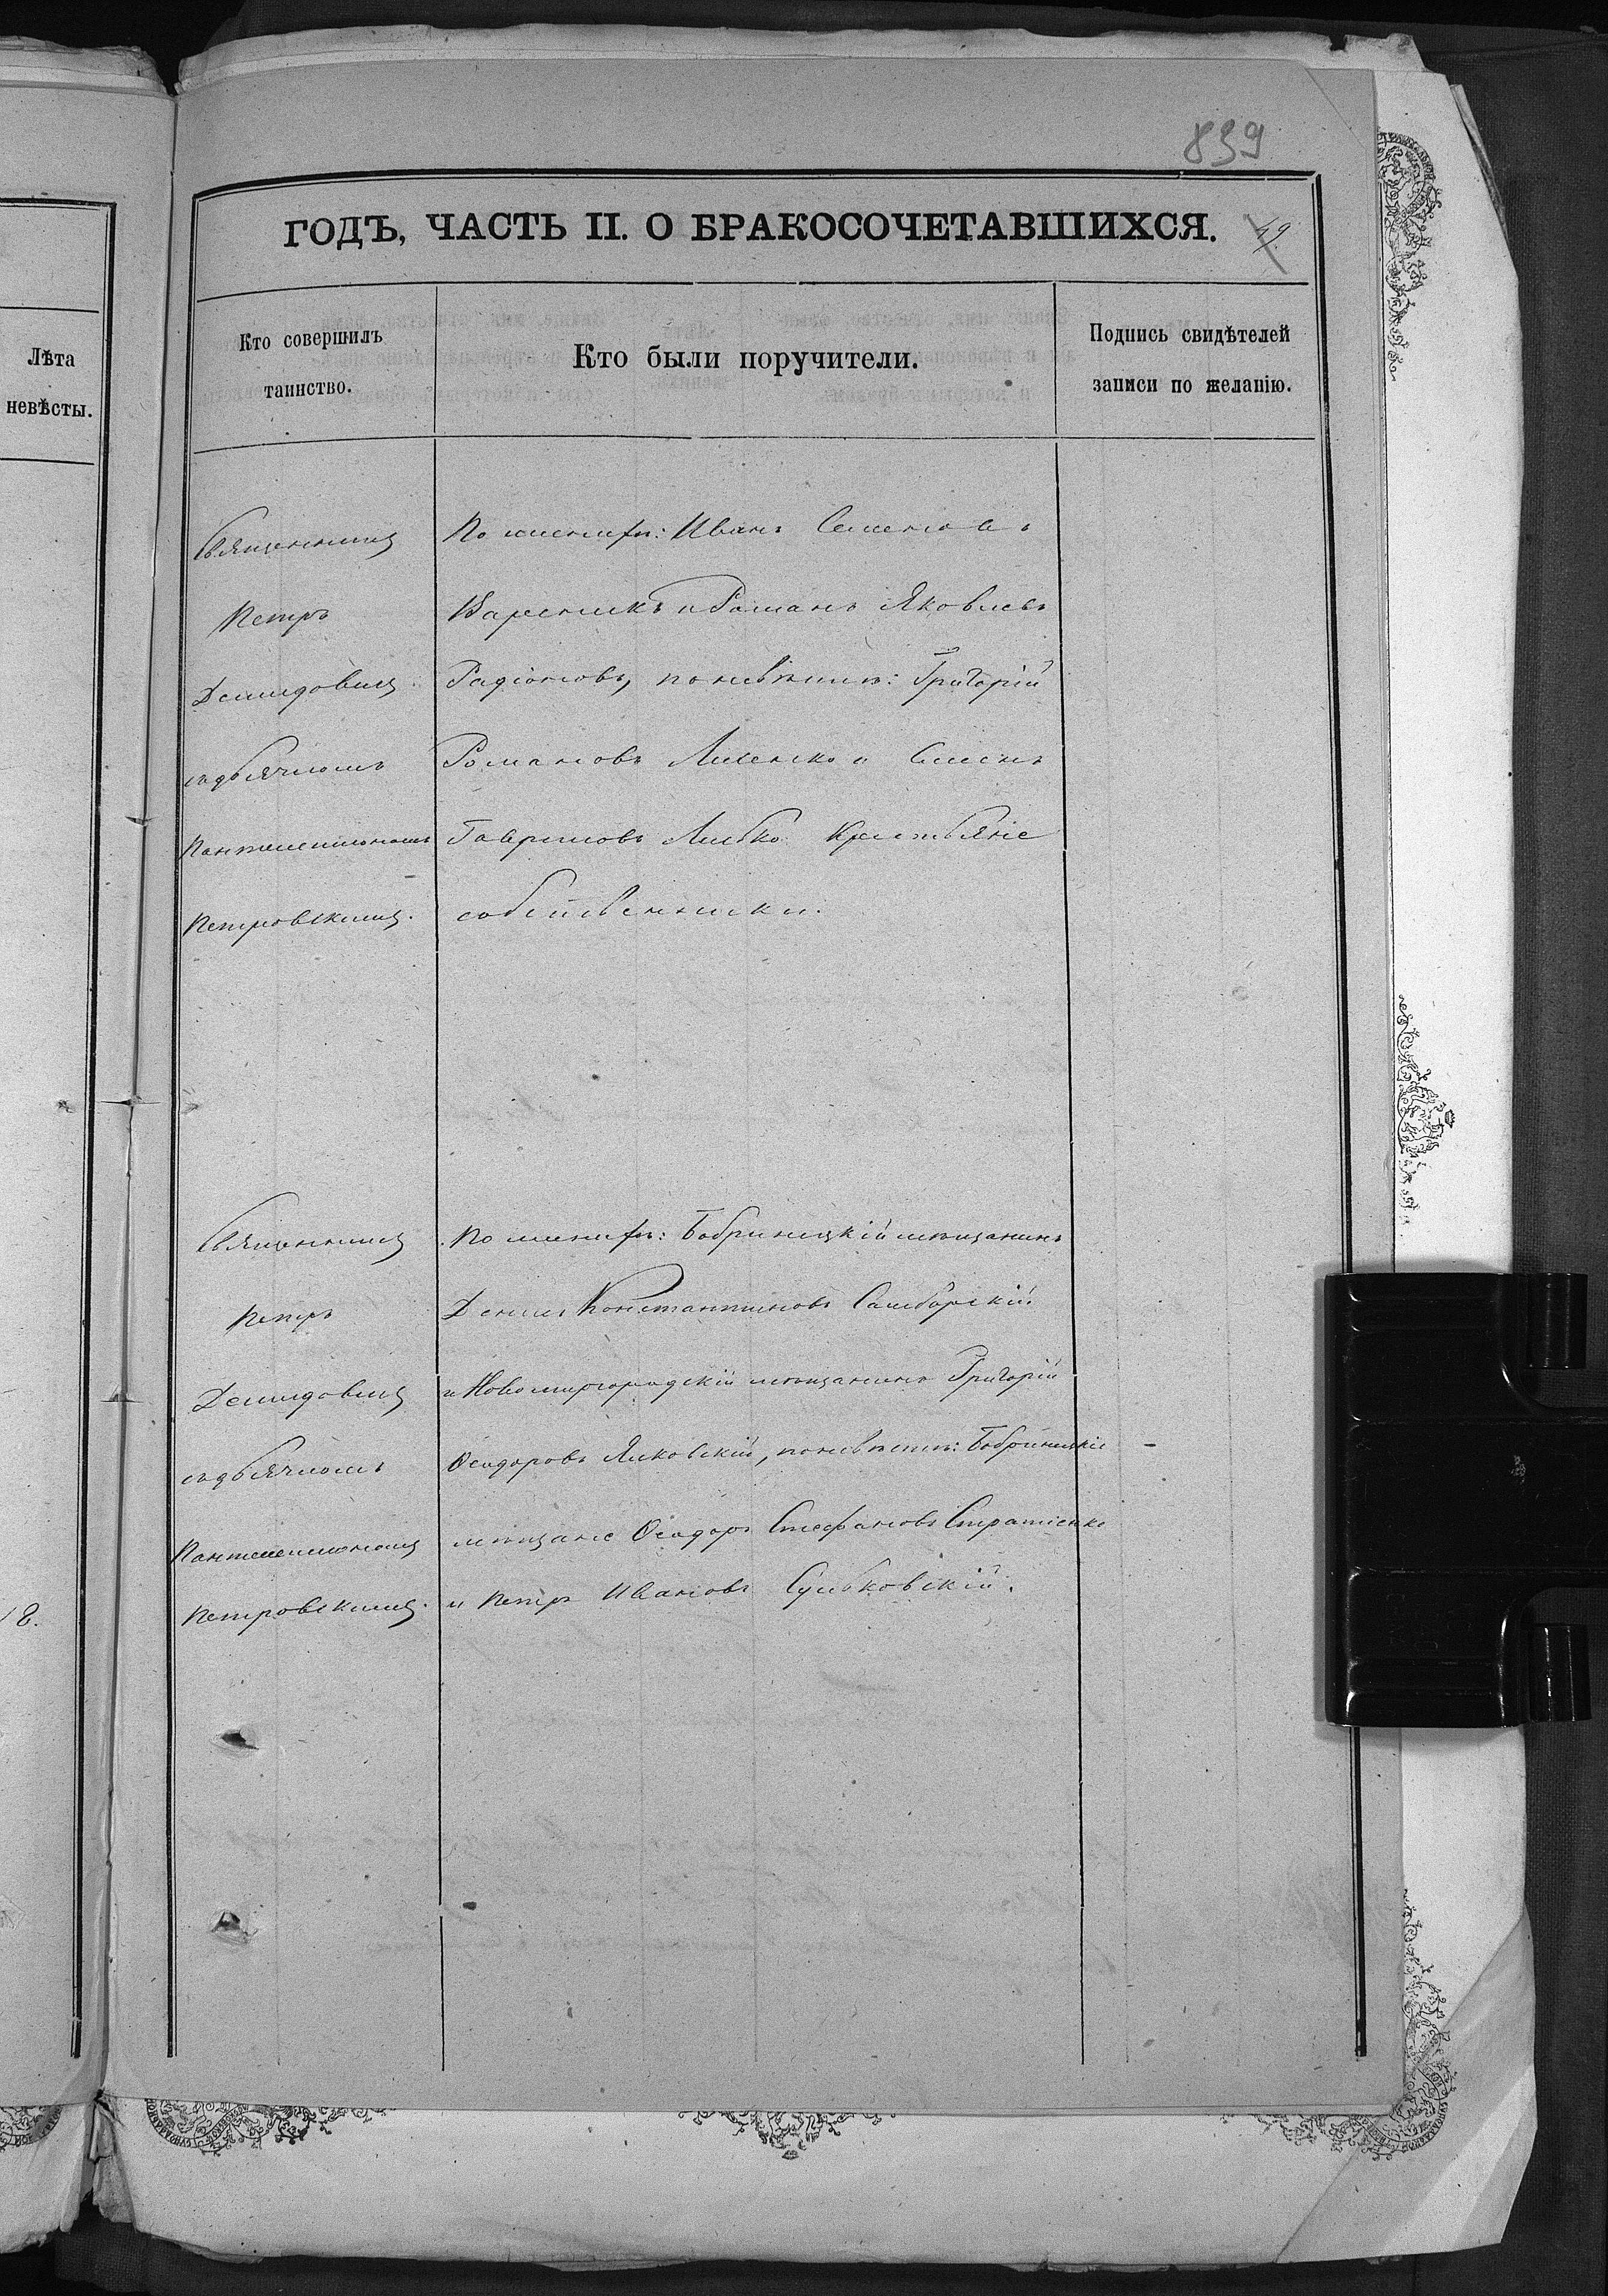 839
ГОДЪ, ЧАСТЬ II. О БРАКОСОЧЕТАВШИХСЯ.
49.
Лѣта
невѣсты.
Кто совершилъ
таинство.
Кто были поручители.
Подпись свидѣтелей
записи по желанію.
Священникъ
Петръ
Демидовичъ
съ дьячкомъ
Пантелеимономъ
Петровскимъ.
По женихѣ: Иванъ Семеновъ
Вареникъ и Романъ Яковлевъ
Радіоновъ, по невѣстѣ: Григорій
Романовъ Лисенко и Симеонъ
Гавриловъ Либко крестьяне
собственники.
Священникъ
Петръ
Демидовичъ
съ дьячкомъ
Пантелеимономъ
Петровскимъ.
По женихѣ: Бобринецкій мѣщанинъ
Денисъ Константиновъ Самборскій
и Новомиргородскій мѣщанинъ Григорій
Ѳеодоровъ Яновскій, по невѣстѣ: Бобринецкіе
мѣщане Ѳеодоръ Стефановъ Стратіенко
и Петръ Ивановъ Сулковскій.
18.